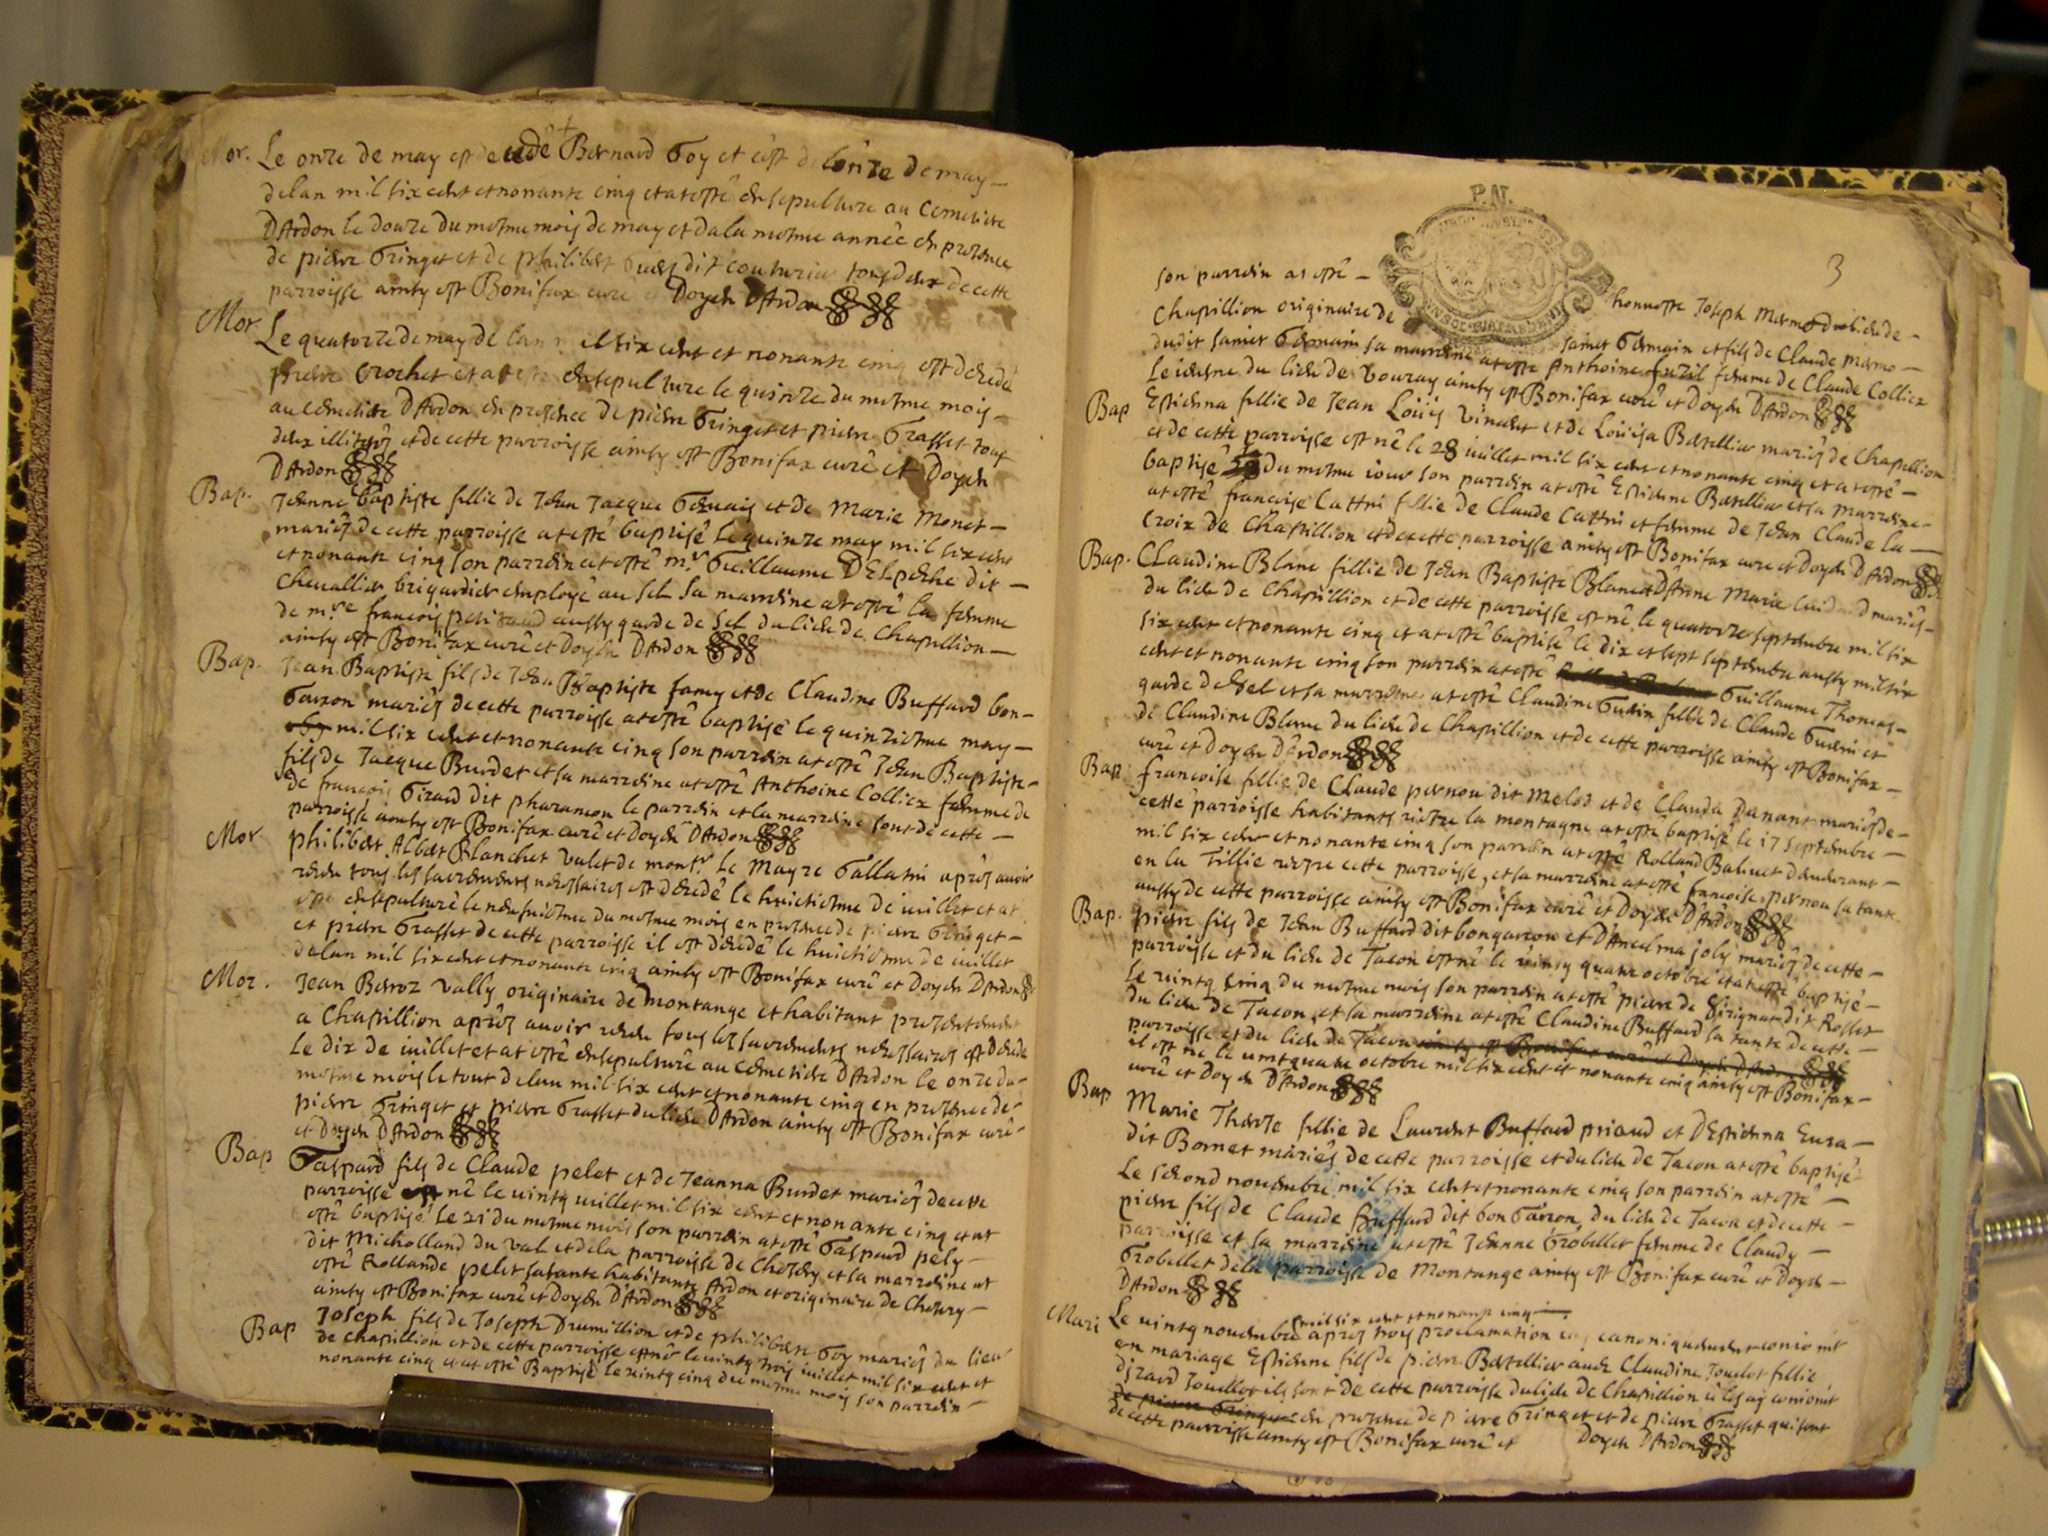 Mor. Le onze de may est decede Bernard Goy et cest d lonze de may
delan mil six cent et nonante cinq et at esté ensepulture au Cemetiere
DArdon le douze du mesme mois de may et dela mesme année en presence
de pierre Gringet et de philibert dit couturier tous deux de cette
parroisse ainsy est Bonifax curé Doyen DArdon
Mor Le quatorze de may de lan mil six cent et nonante cinq est decedé
pierre Crochet et at esté ensepulture le quinze du mesme mois
au cemetiere DArdon en presence de pierre Gringet et pierre Grasset tous
deux illiterés et de cette parroisse ainsy est Bonifax curé et Doyen
DArdon
Bap. Jeanne baptiste fillie de Jean Jacque Gervais et de Marie Monet
mariés de cette parroisse at esté baptisé le quinze may mil six cent
et nonante cinq son parrein at esté mr. Guillaume DElpeche dit
Chevallier brigardier employé au sel sa marreine at esté la femme
de mre francois aussy garde de sel du lieu de Chastillion
ainsy est Bonifax curé et Doyen DArdon
Bap. Jean Baptiste fils de Jean Baptiste famy et de Claudine Buffard bon
Garson mariés de cette parroisse at esté baptisé le quinziesme may
mil six cent et nonante cinq son parrein at esté Jean Baptiste
fils de Jacque Burdet et sa marreine at esté Anthoine Colliex femme de
de francois Giraud dit pharamon le parrein et la marreine sont de cette
parroisse ainsy est Bonifax curé et Doyen DArdon
Mor philibert Albert Blanchet valet de monsr. Le Mayre Gallatin après avoir
receu tous les sacrements necessaires est decedé le huictiesme de iuillet et at
esté ensepulturé le neufviesme du mesme mois en presence de pierre Gringet
et pierre Grasset de cette parroisse il est decedé le huictiesme de iuillet
delan mil six cent et nonante cinq ainsy est Bonifax curé et Doyen DArdon
Mor. Jean Berroz vally originaire de Montange et habitant presentement
a Chastillion après avoir receu tous les sacrements necessaires est decede
Le dix de iuillet et at esté ensepulturé au cemetiere DArdon le onze du
mesme mois le tout delan mil six cent et nonante cinq en presence de
pierre Gringet et pierre Grasset du lieu DArdon ainsy est Bonifax curé
et Doyen DArdon
Bap Gaspard fils de Claude pelet et de Jeanna Burdet mariés de cette
parroisse né le vintq iuillet mil six cent et nonante cinq et at
esté baptisé le 21 du mesme mois son parrein at esté Gaspard pely
dit Micholland du val et dela parroisse de Cheséry et sa marreine at
esté Rollande pelet sa tante habitante Ardon et originaire de Chesery
ainsy est Bonifax curé et Doyen DArdon
Bap Joseph fils de Joseph Drumillion et de philiberte Goy mariés du lieu
de Chastillion et de cette parroisse est né le vintq trois iuillet mil six cent et
nonante cinq et at esté Baptisé le vintq cinq du mesme mois son parrein
P.N.
3
son parrein at esté honneste Joseph Mermo du lieu de
Chastillion originaire de saint Germain et fils de Claude mermo
dudit saint Germain sa marreine at esté Anthoine femme de Claude Colliex
Le ieusne du lieu de Vouvray ainsy est Bonifax curé et Doyen DArdon
Bap Estienna fillie de Jean Loüis Vincent et de Loüisa Bertellier mariés de Chastillion
et de cette parroisse est né le 28 iuillet mil six cent et nonante cinq et at esté
baptisé du mesme iour son parrein at esté Estienne Bertellier et sa marreine
at esté francoise Cattin fillie de Claude Cattin et femme de Jean Claude la
Croix de Chastillion et de cette parroisse ainsy est Bonifax curé et Doyen DArdon
Bap. Claudine Blanc fillie de Jean Baptiste Blanc et DAnne Marie mariés
du lieu de Chastillion et de cette parroisse est né le quatorze septembre mil six
six cent et nonante cinq et at esté baptisé le dix et sept septembre aussy mil six
cent et nonante cinq son parrein at esté Guillaume Thomas
garde de sel et sa marreine at esté Claudine Guerin fillie de Claude Guerin et
de Claudine Blanc du lieu de Chastillion et de cette parroisse ainsy est Bonifax
curé et Doyen DArdon
Bap francoise fillie de Claude pernou dit Melod et de Clauda Danant mariés de
cette parroisse habitants riere la montagne at esté baptisé le 17 septembre
mil six cent et nonante cinq son parrein at esté Rolland Balivet demeurant
en la Tillie riere cette parroisse, et sa marreine at esté francoise pernou sa tante
aussy de cette parroisse ainsy est Bonifax curé et Doyen DArdon
Bap. pierre fils de Jean Buffard dit bongarson et DAncelma Joly mariés de cette
parroisse et du lieu de Tacon est né le vintq quatre octobre et at esté baptisé
Le vintq cinq du mesme mois son parrein at esté pierre de Sirignat dit Rosset
du lieu de Tacon et sa marreine at esté Claudine Buffard sa tante de cette
parroisse et du lieu de Tacon ainsy est Bonifax curé et Doyen DArdon
il est né le vintquatre octobre mil six cent et nonante cinq ainsy est Bonifax
curé et Doyen DArdon
Bap Marie Therese fillie de Laurent Buffard priaud et DEstienna Eura
dit Bornet mariés de cette parroisse et du lieu de Tacon at esté baptisé
Le second novembre mil six cent et nonante cinq son parrein at esté
pierre fils de Claude Buffard dit bon Garson, du lieu de Tacon et de cette
parroisse et sa marreine at esté Jeanne Grobellet femme de Claudy
Grobellet dela parroisse de Montange ainsy est Bonifax curé et Doyen
DArdon
mil six cent et nonante cinq
Mari Le vintq novembre après trois proclamation canoniquement conioint
en mariage Estienne fils de pierre Bertellier avec Claudine Jouelot fillie
Giraud Jouellot ils sont de cette parroisse du lieu de Chastillion et les ay conioint
de pierre Gringet en presence de pierre Gringet et de pierre Grasset qui sont
de cette parroisse ainsy est Bonifax curé et Doyen DArdon